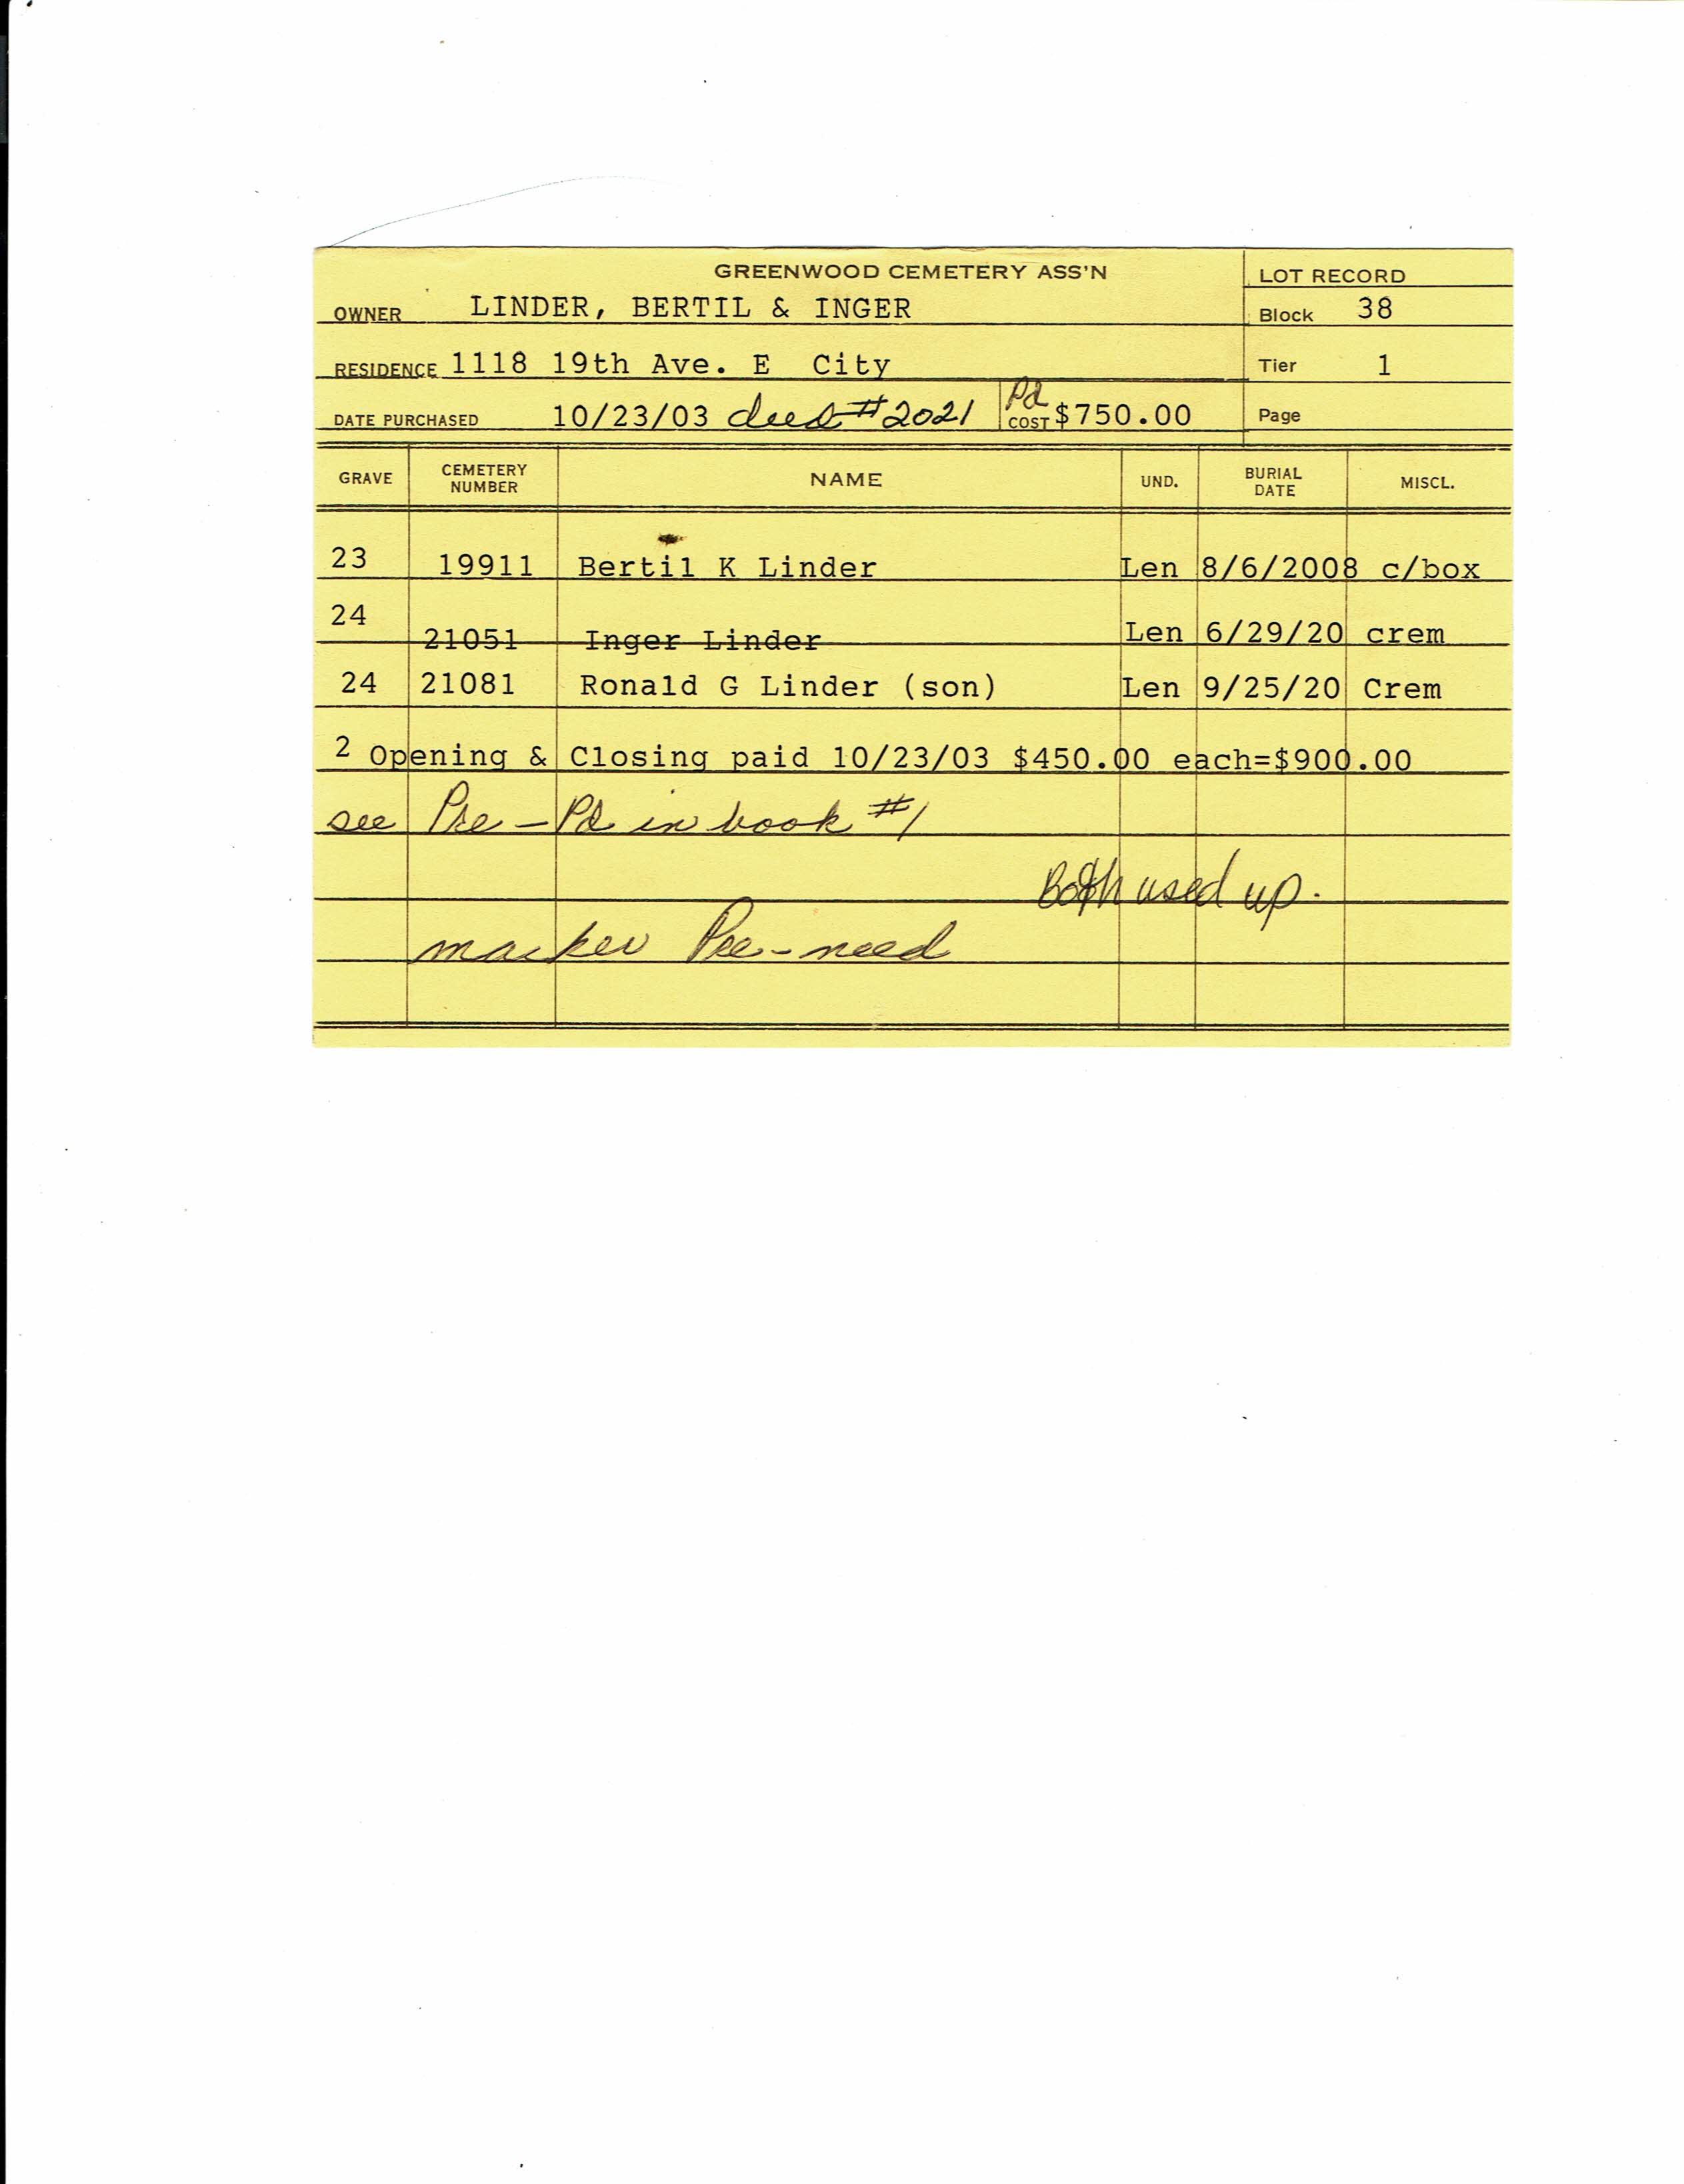 GREENWOOD CEMETERY ASS'N
LOT RECORD
OWNER LINDER, BERTIL & INGER
Block 38
RESIDENCE 1118 19th Ave. E City
Tier 1
DATE PURCHASED 10/23/03 deed #2021 Pd COST $750.00
Page
GRAVE CEMETERY NUMBER NAME UND. BURIAL DATE MISCL.
23 19911 Bertil K Linder Len 8/6/2008 c/box
24 21051 Inger Linder Len 6/29/20 crem
24 21081 Ronald G Linder (son) Len 9/25/20 Crem
2 Opening & Closing paid 10/23/03 $450.00 each=$900.00
see Pre-Pd in book #1
Both used up.
marker Pre-need